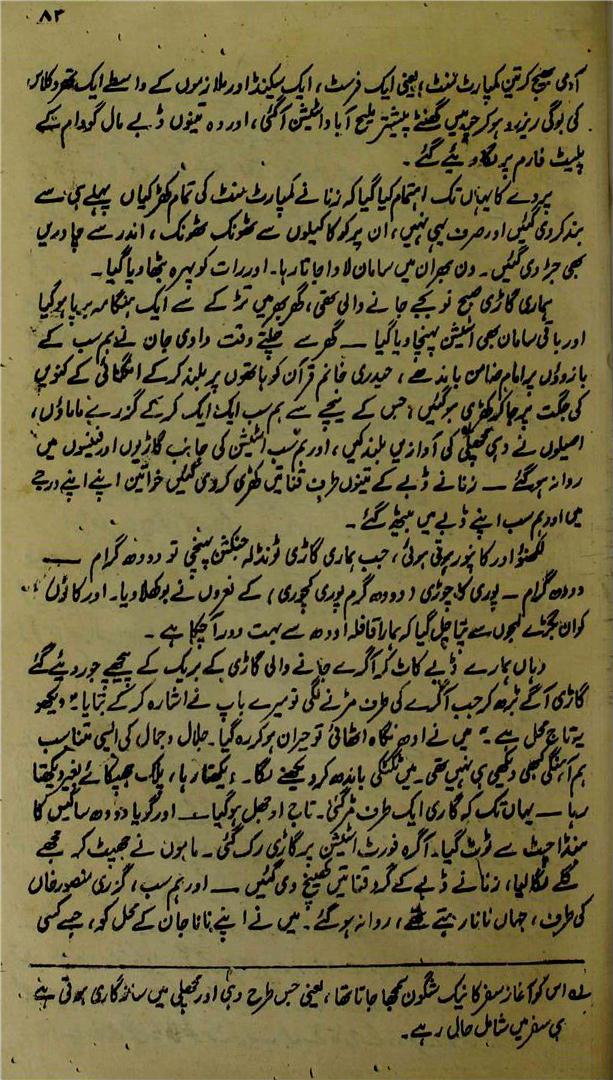 ۸۳
آدمی بھیج کر تین کمپارٹ منٹ، یعنی ایک فرسٹ، ایک سیکنڈ اور ملازموں کے واسطے ایک تھرڈ کلاس
کی بوگی ریزرو ہو کر چوبیس گھنٹے پیشتر ملیح آباد اسٹیشن آگئی، اور وہ تینوں ڈبے مال گودام کے
پلیٹ فارم پر لگا دیئے گئے۔
پردے کا یہاں تک اہتمام کیا گیا کہ زنانے کمپارٹ منٹ کی تمام کھڑکیاں پہلے ہی سے
بند کر دی گئیں اور صرف یہی نہیں، ان پر کوکا کیلوں سے ٹھونک ٹھونک، اندر سے چادریں
بھی جڑ دی گئیں۔ دن بھر ان میں سامان لادا جاتا رہا۔ اور رات کو پہرہ بٹھا دیا گیا۔
ہماری گاڑی صبح نو بجے جانے والی تھی، گھر بھر میں تڑکے سے ایک ہنگامہ برپا ہو گیا
اور باقی سامان بھی اسٹیشن پہنچا دیا گیا — گھر سے چلتے وقت دادی جان نے ہم سب کے
بازوؤں پر امام ضامن باندھے، حیدری خانم قرآن کو ہاتھوں پر بلند کر کے انگنائی کے کنویں
کی جگت پر جا کر کھڑی ہو گئیں، جس کے نیچے سے ہم سب ایک ایک کر کے گزرے ماماؤں،
اصیلوں نے دہی مچھلی کی آوازیں بلند کیں، اور ہم سب اسٹیشن کی جانب گاڑیوں اور فینسوں میں
روانہ ہو گئے — زنانے ڈبے کے تینوں طرف قناتیں کھڑی کر دی گئیں خواتین اپنے اپنے درجے
میں اور ہم سب اپنے ڈبے میں بیٹھ گئے۔
لکھنؤ اور کانپور ہوتی ہوئی، جب ہماری گاڑی ٹونڈلہ جنکشن پہنچی تو دودھ گرام —
دودھ گرام — پوری کچوڑی (دودھ گرم پوری کچوری) کے نعروں نے بوکھلا دیا۔ اور کانوں
کو ان بگڑے لہجوں سے پتا چل گیا کہ ہمارا قافلہ اودھ سے بہت دور آچکا ہے۔
وہاں ہمارے ڈبے کاٹ کر آگرے جانے والی گاڑی کے بریک کے پیچھے جوڑ دیئے گئے
گاڑی آگے بڑھ کر جب آگرے کی طرف مڑنے لگی تو میرے باپ نے اشارہ کر کے بتایا "دیکھو
یہ تاج محل ہے۔" میں نے ادھر نگاہ اٹھائی تو حیران ہو کر رہ گیا۔ جلال و جمال کی ایسی متناسب
ہم آہنگی کبھی دیکھی ہی نہیں تھی۔ میں ٹکٹکی باندھ کر دیکھنے لگا۔ دیکھتا رہا، پلک جھپکائے بغیر دیکھتا
رہا — یہاں تک کہ گاڑی ایک طرف مڑ گئی۔ تاج اوجھل ہو گیا — اور گویا دودھ سائیس کا
ہنڈا چٹ سے ٹوٹ گیا۔ آگرہ فورٹ اسٹیشن پر گاڑی رک گئی۔ ماموں نے جھپٹ کر مجھے
گلے لگا لیا، زنانے ڈبے کے گرد قناتیں کھینچ دی گئیں — اور ہم سب، گزری منصور خاں
کی طرف، جہاں نانا رہتے تھے، روانہ ہو گئے۔ میں نے اپنے نانا جان کے محل کو، جسے کسی
لے اس کو آغاز سفر کا نیک شگون سمجھا جاتا تھا، یعنی جس طرح دہی اور مچھلی میں سازگاری ہوتی ہے
ہی سفر میں شامل حال رہے۔